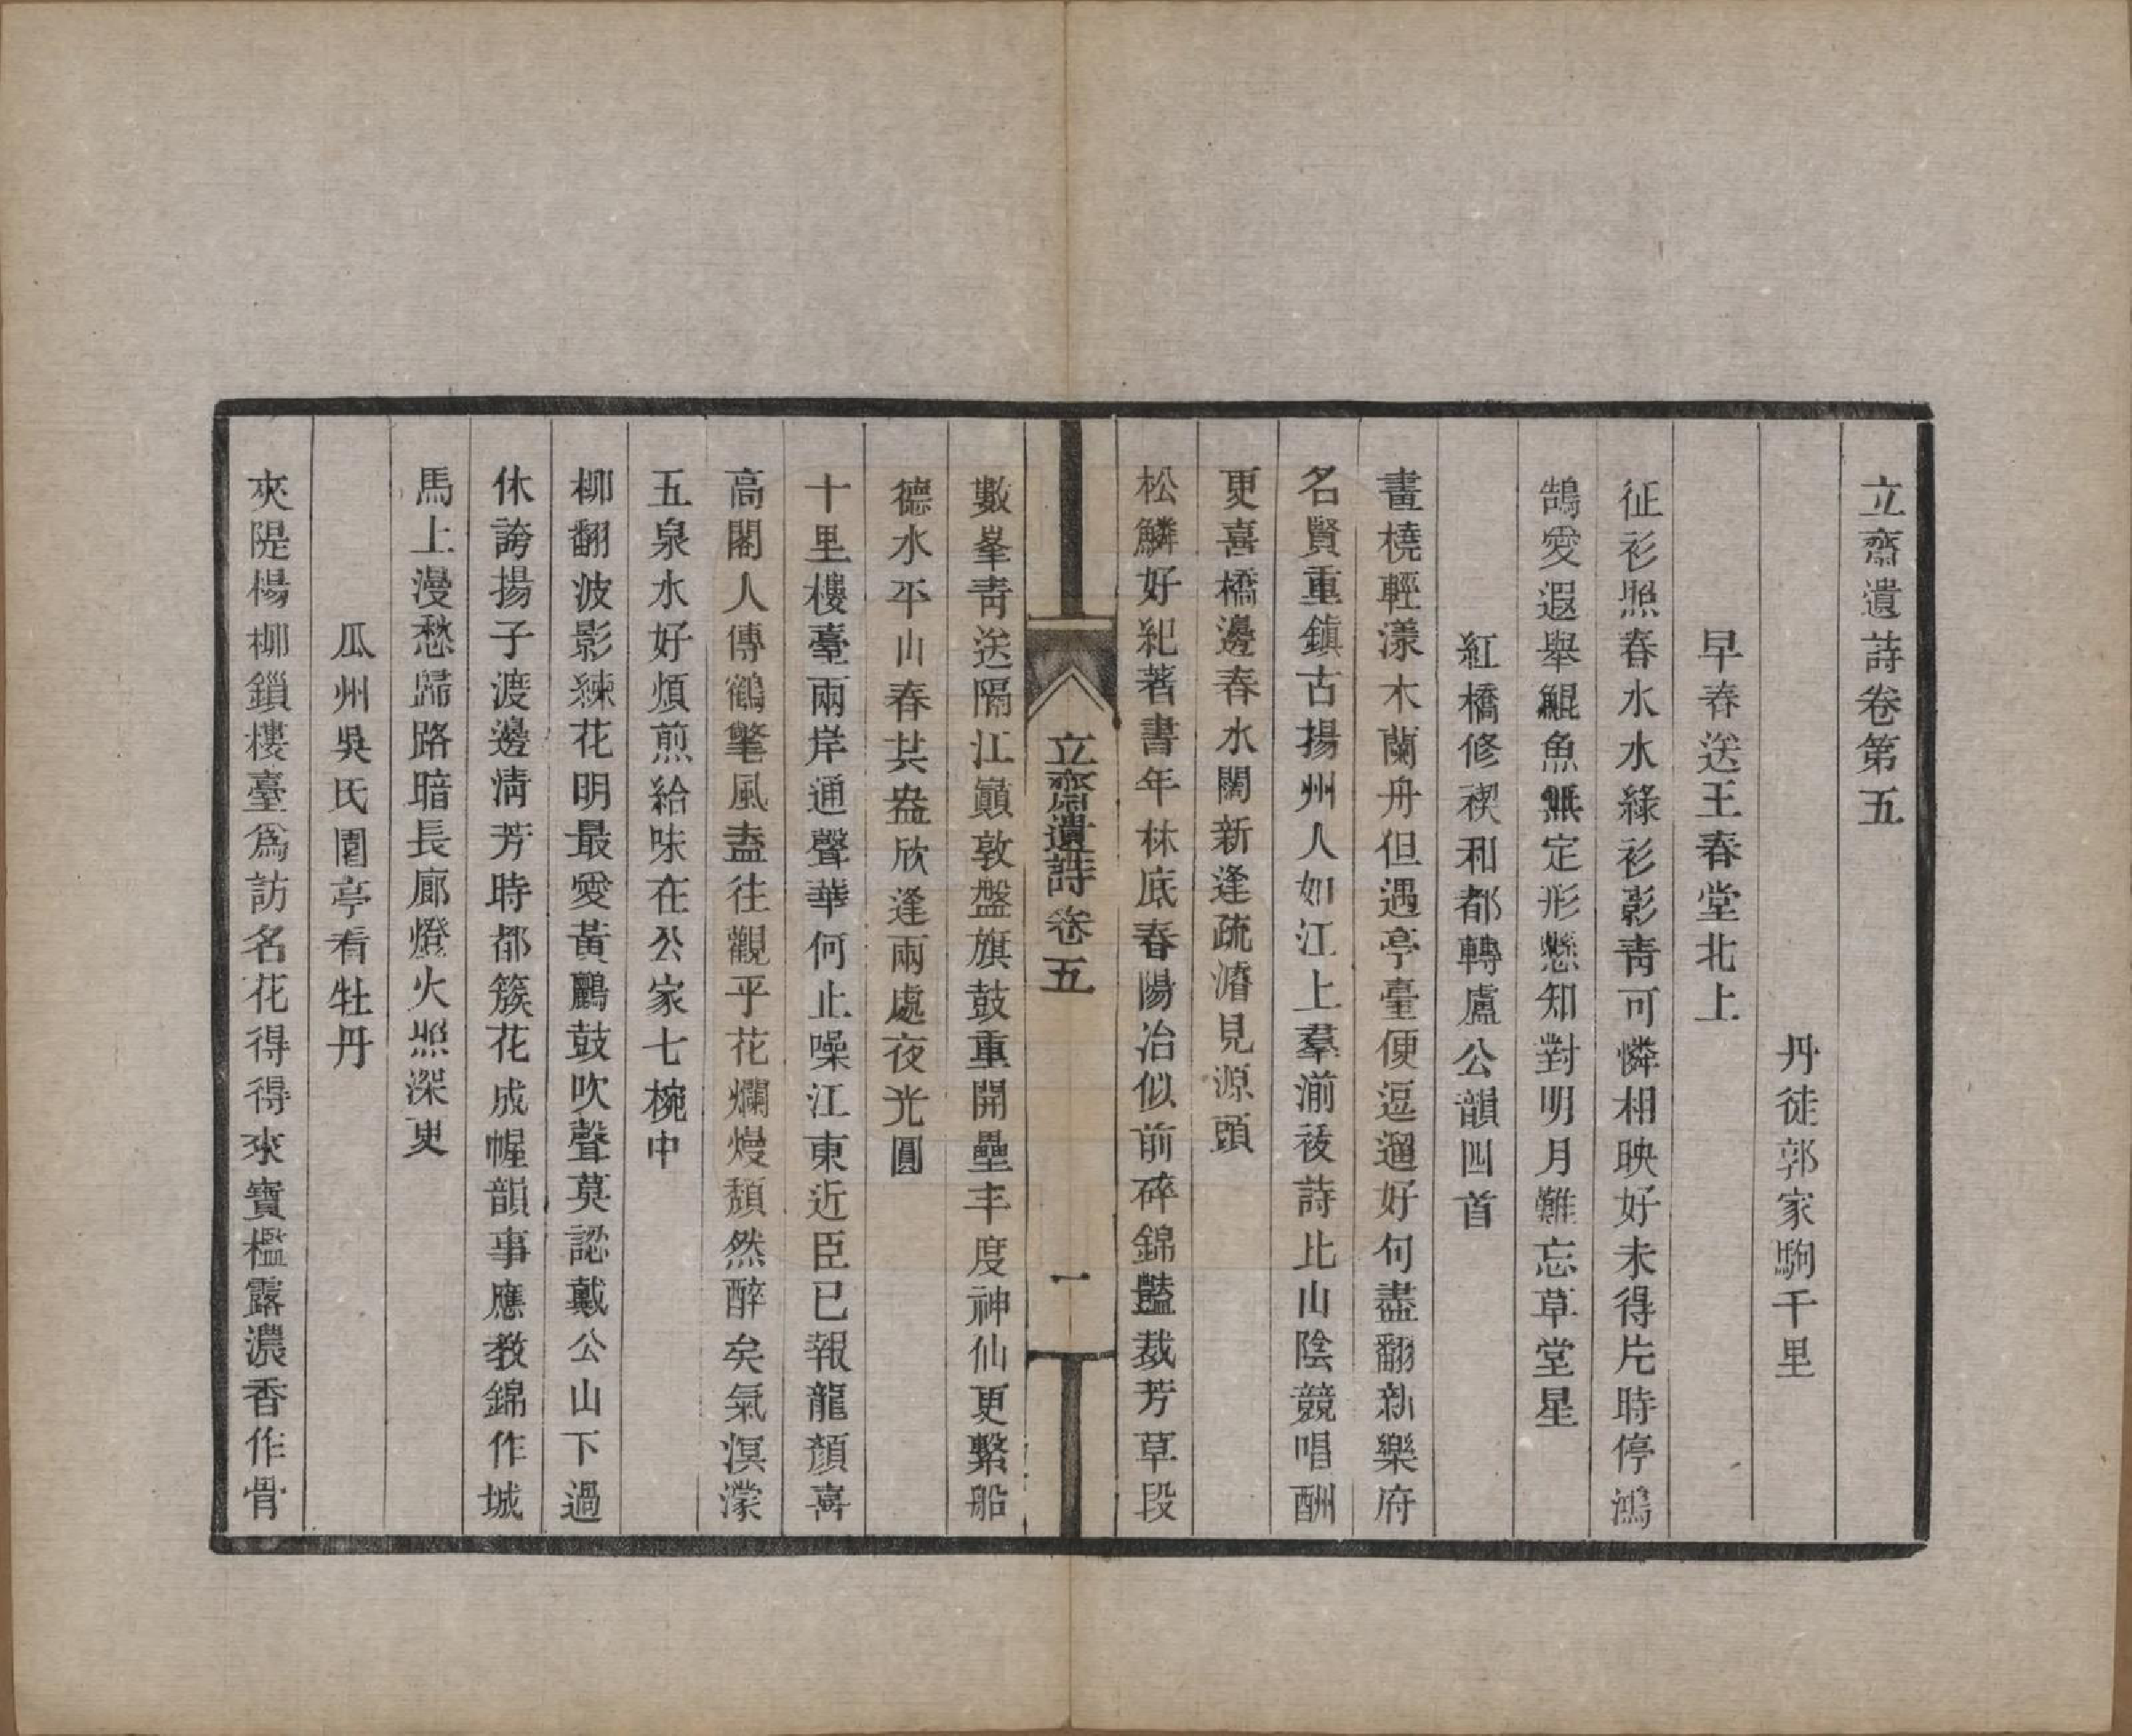 立齋遺詩卷第五
丹徒郭家駒千里
早春送王春堂北上
征衫照春水水綠衫影靑可憐相映好未得片時停鴻
鵠愛遐舉鯤魚無定形懸知對明月難忘草堂星
紅橋修禊和都轉盧公韻四首
畫橈輕漾木蘭舟但遇亭臺便逗遛好何盡翻新樂府
名賢重鎮古揚州人如江上羣湔祓詩比山陰競唱酬
更喜橋邊春水闊新逢疏濬見源頭
松鱗好紀著書年林底春陽冶似前碎錦豔裁芳草段
數峯靑送隔江巔敦盤旗鼓重開壘丰度神仙更繫船
德水平山春共盎欣逢兩處夜光圓
十里樓臺兩岸通聲華何止噪江東近臣已報龍顏喜
高閣人傳鶴氅風盍往觀乎花爛熳頽然醉矣氣溟濛
五泉水好煩煎給味在公家七椀中
柳翻波影練花明最愛黃鸝鼓吹聲莫認戴公山下過
休誇揚子渡邊淸芳時都簇花成幄韻事應教錦作城
馬上漫愁歸路暗長廊燈火照深更
瓜州吳氏園亭看牡丹
夾隄楊柳鎖樓臺爲訪名花得得來寶檻露濃香作骨
立齋遺詩卷五
一